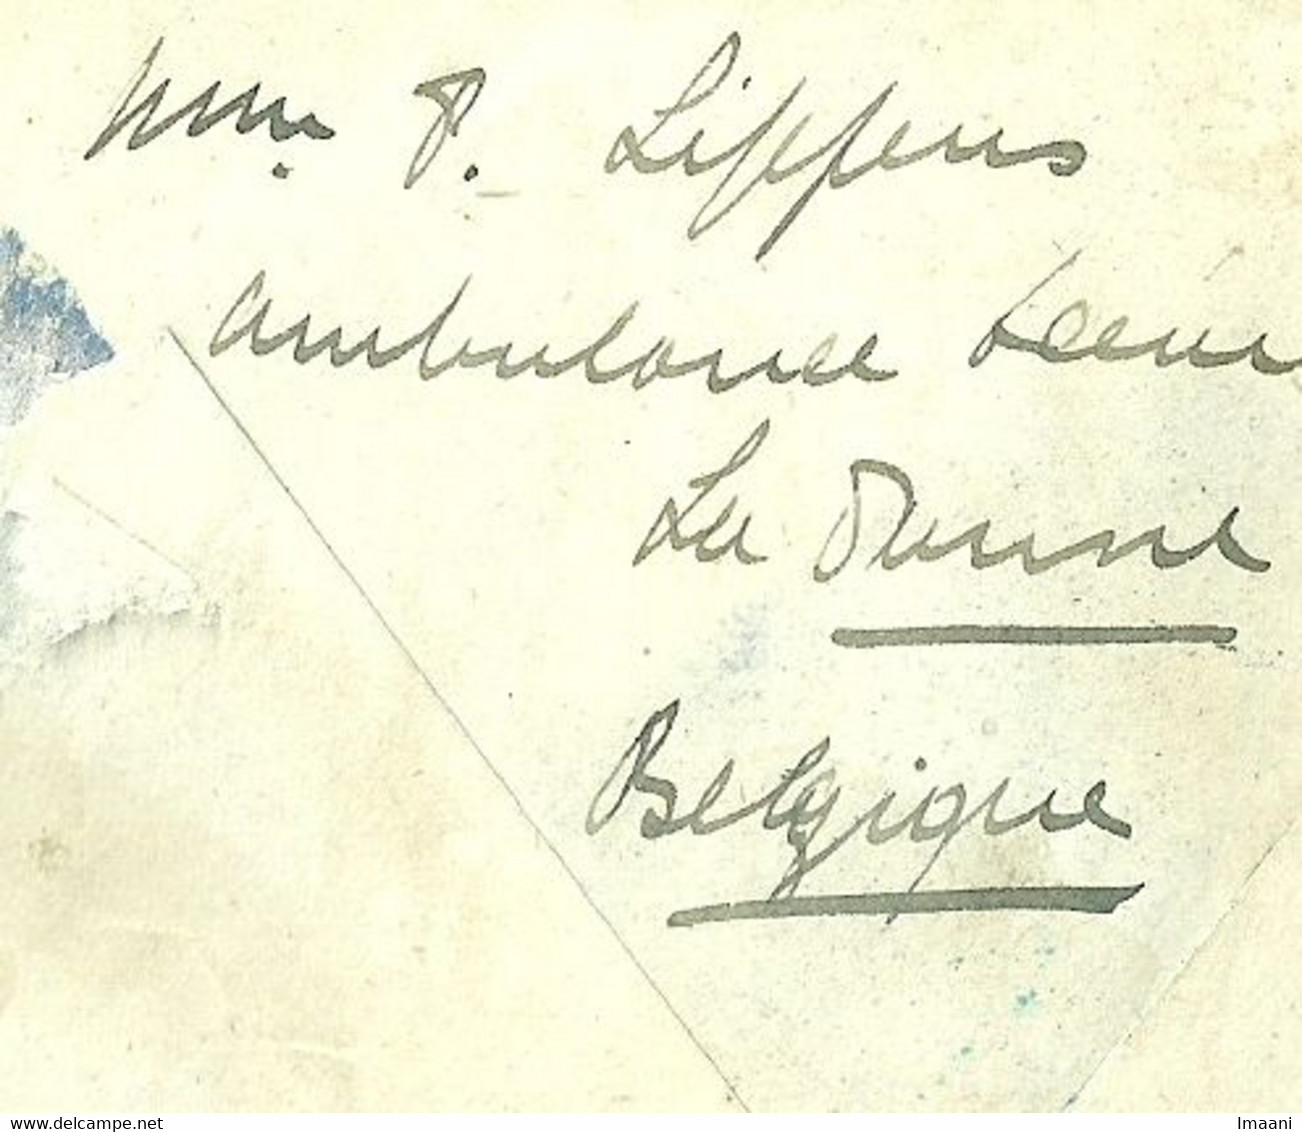 Mme P. Lippens
Ambulance
La Panne
Belgique
www.delcampe.net
Imaani